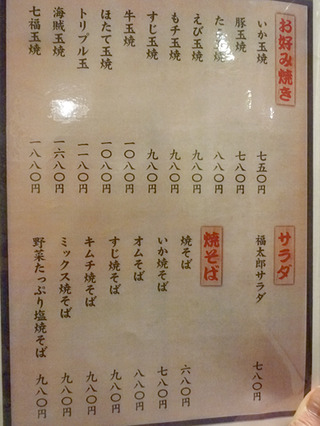 お好み焼き
いか玉焼 七五〇円
豚玉焼 七八〇円
たこ玉焼 八八〇円
えび玉焼 九八〇円
もチ玉焼 九八〇円
すじ玉焼 九八〇円
牛玉焼 一〇八〇円
ほたて玉焼 一〇八〇円
トリプル玉 一一八〇円
海賊玉焼 一六八〇円
七福玉焼 一八八〇円
サラダ
福太郎サラダ 七八〇円
焼そば
焼そば 六八〇円
いか焼そば 七八〇円
オムそば 八八〇円
すじ焼そば 九八〇円
キムチ焼そば 九八〇円
ミックス焼そば 九八〇円
野菜たっぷり塩焼そば 九八〇円